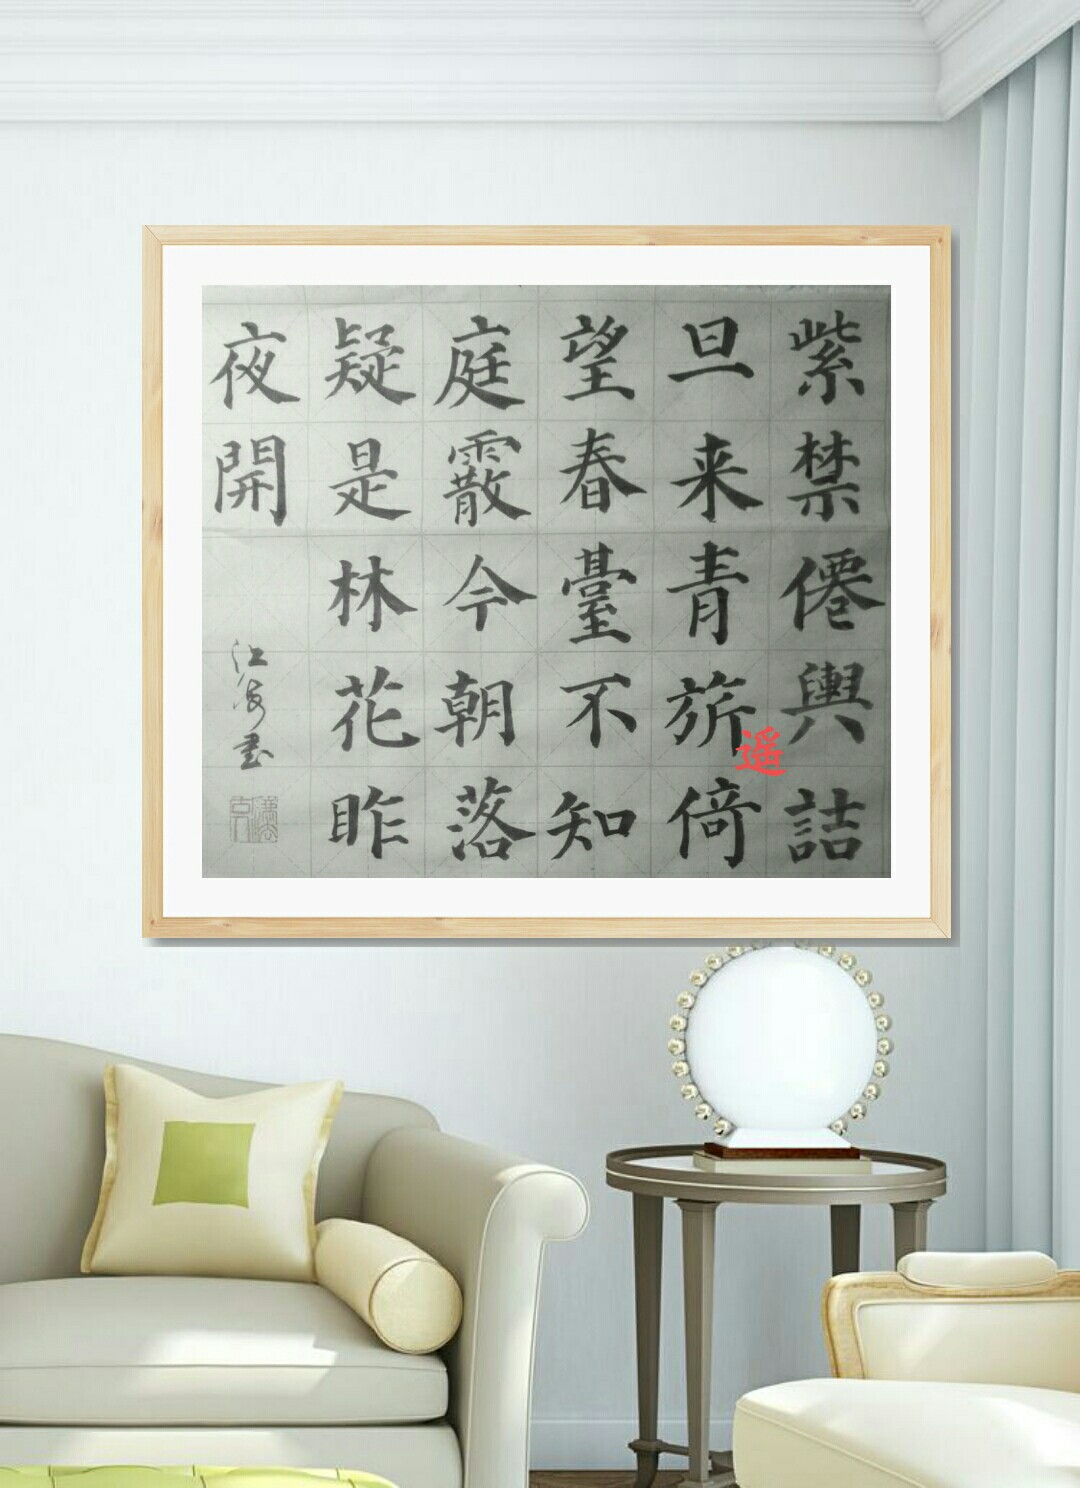 紫禁僊輿詰
旦来青旂遥倚
望春臺不知
庭霰今朝落
疑是林花昨
夜開
江海書